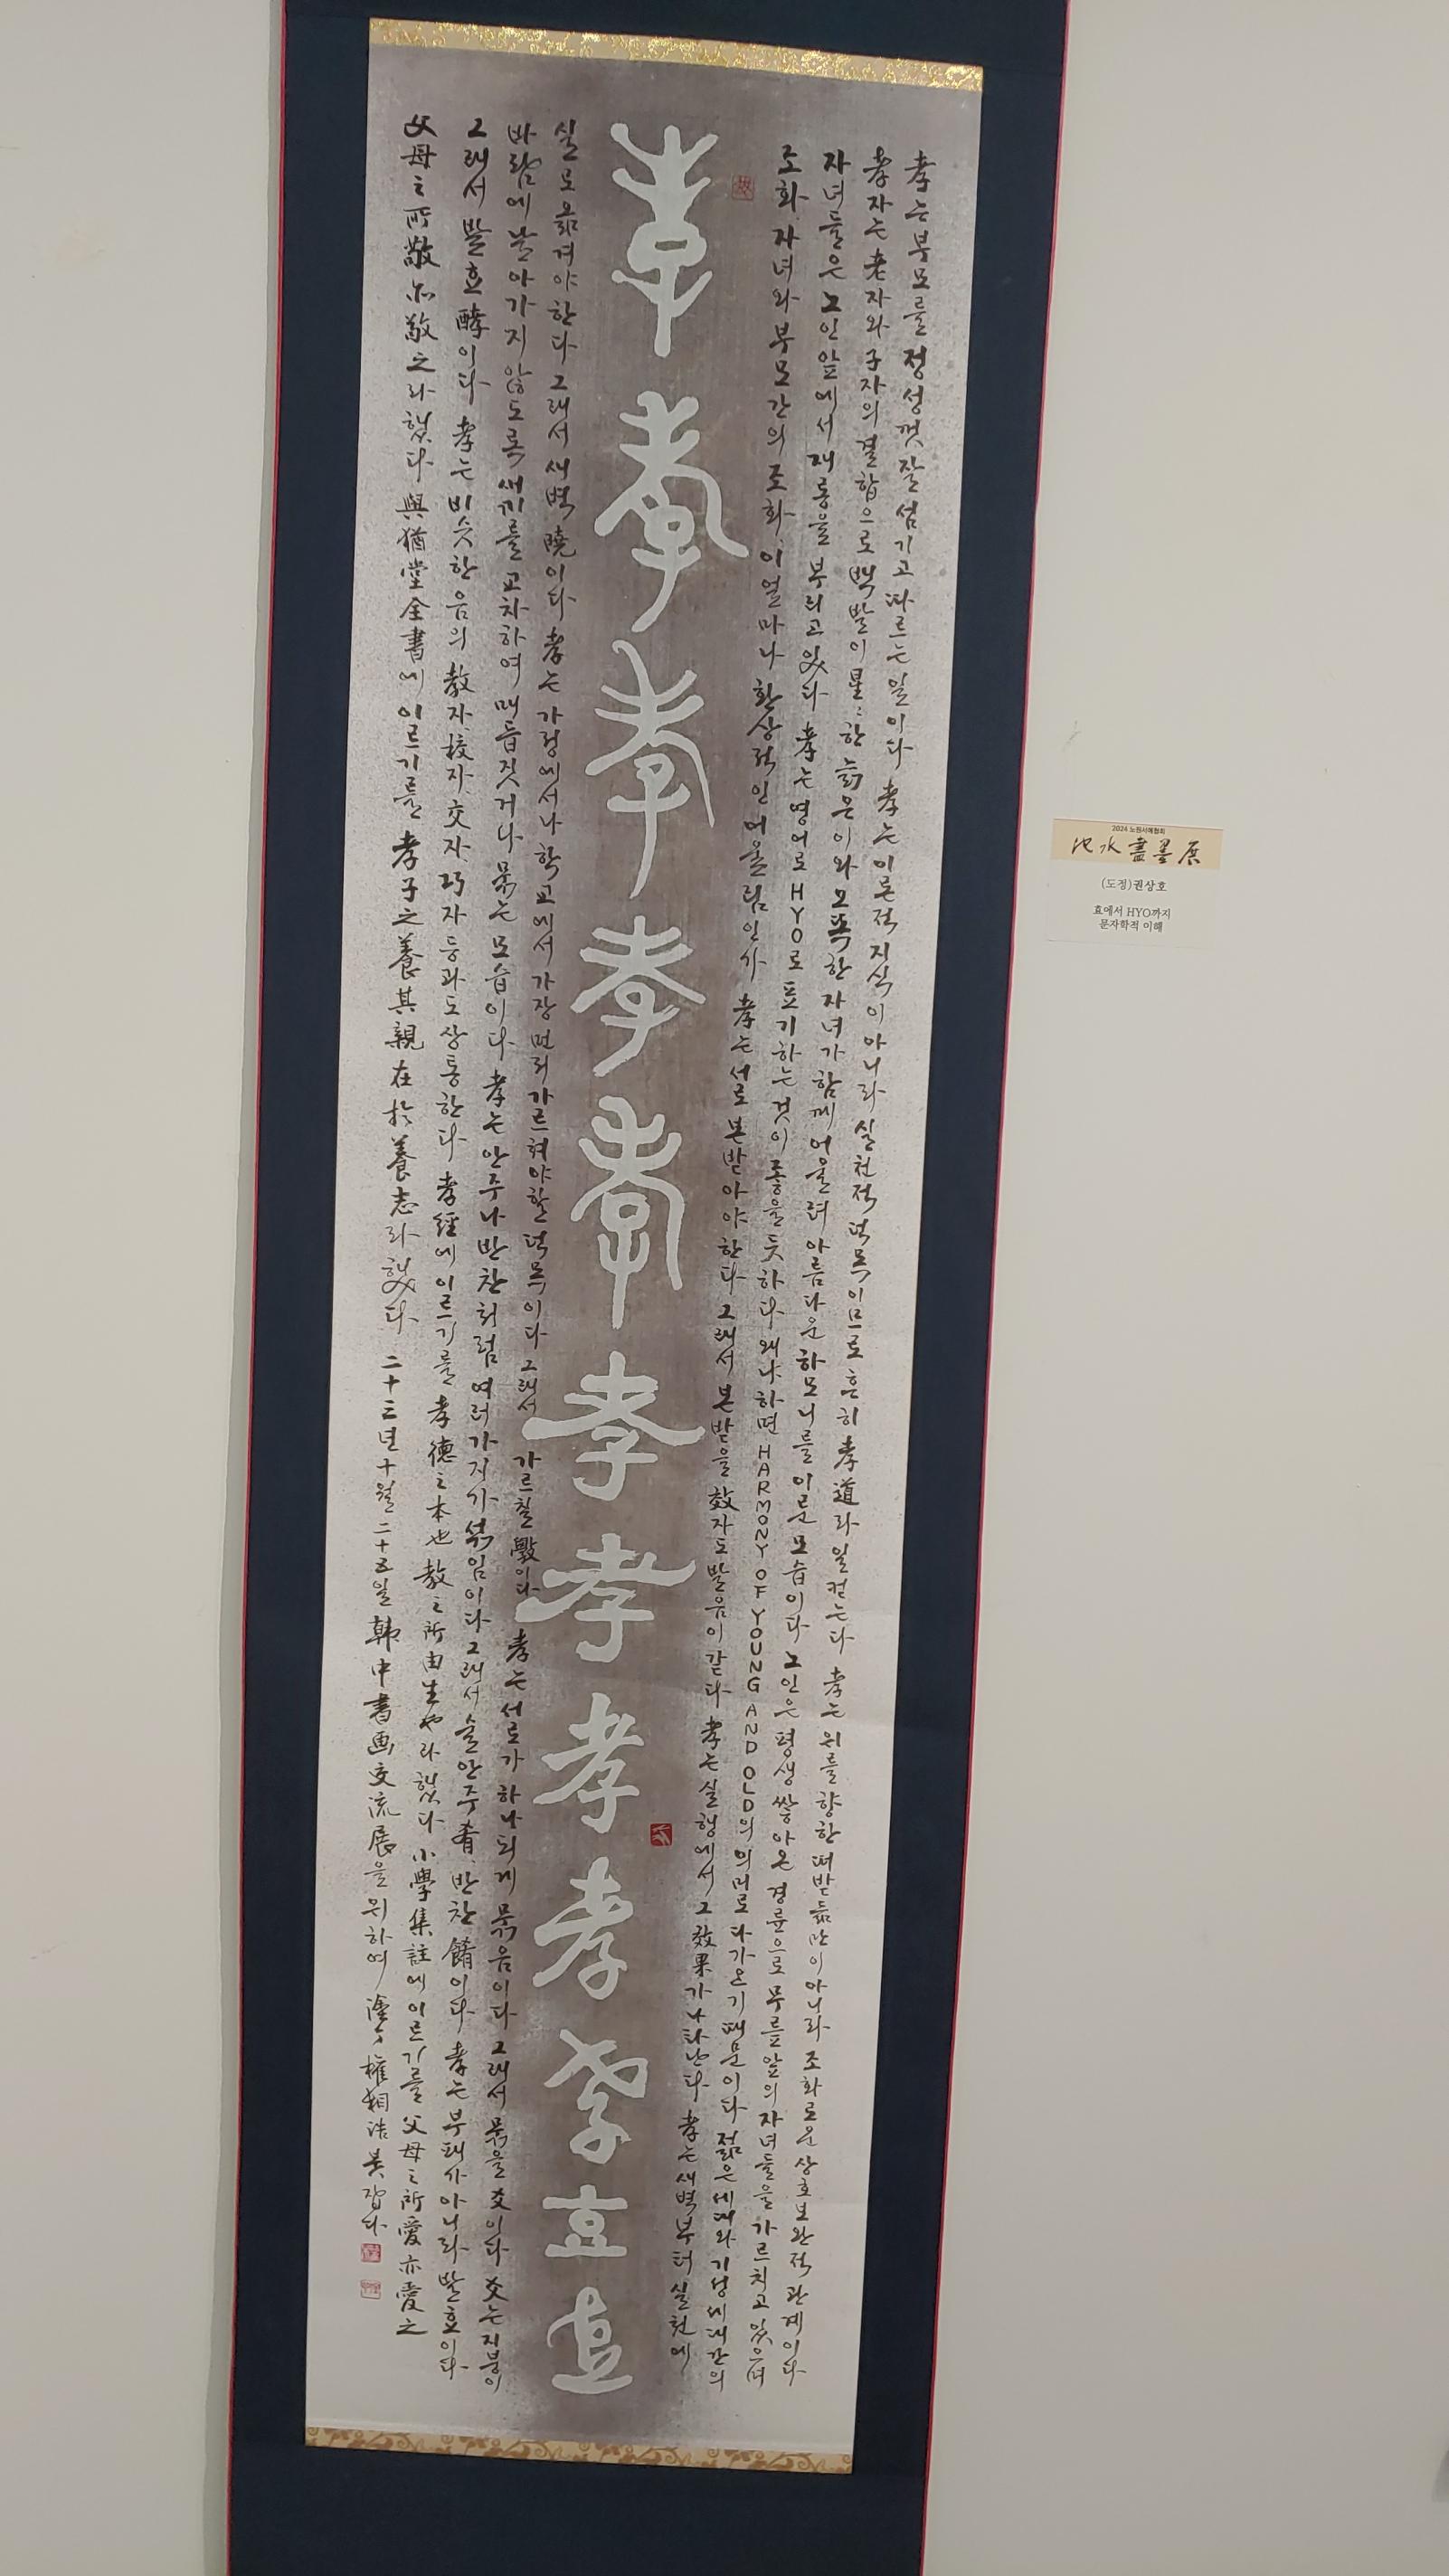 孝는 부모를 정성껏 잘 섬기고 따르는 일이다 孝는 이론적 지식이 아니라 실천적 덕목이므로 흔히 孝道라 일컫는다 孝는 위를 향한 떠받듦만이 아니라 조화로운 상호보완적 관계이다
孝자는 老자와 子자의 결합으로 백발이 星星한 늙은이와 오뚝한 자녀가 함께 어울려 아름다운 하모니를 이룬 모습이다 그 인은 평생 쌓아온 경륜으로 무릎 앞의 자녀들을 가르치고 있으며
자녀들은 그 인 앞에서 재롱을 부리고 있다 孝는 영어로 HYO로 표기하는 것이 좋을 듯하다 왜냐하면 HARMONY OF YOUNG AND OLD의 의미로 다가오기 때문이다 젊은 세대와 기성세대간의
조화 자녀와 부모간의 조화 이 얼마나 환상적인 어울림인가 孝는 서로 본받아야 한다 그래서 본받을 效자도 발음이 같다 孝는 실행에서 그 效果가 나타난다 孝는 새벽부터 실천에
孝孝孝孝孝孝孝孝孝孝효
실로 옮겨야 한다 그래서 새벽 曉이다 孝는 가정에서나 학교에서 가장 먼저 가르쳐야할 덕목이다 그래서 가르칠 斅이다 孝는 서로가 하나되게 묶음이다 그래서 묶을 爻이다 爻는 지붕이
바람에 날아가지 않도록 새끼를 교차하여 매듭짓거나 묶는 모습이다 孝는 안주나 반찬처럼 여러가지가 섞임이다 그래서 술안주 肴 반찬 餚이다 孝는 부패가 아니라 발효이다
그래서 발효 酵이다 孝는 비슷한 음의 敎자 校자 交자 巧자 등과도 상통한다 孝經에 이르기를 孝德之本也 敎之所由生也라 했다 小學集註에 이르기를 父母之所愛亦愛之
父母之所敬亦敬之라 했다 與猶堂全書에 이르기를 孝子之養其親 在於養志라 했다 二十三년 十월 二十五일 韓中書画交流展을 위하여 塗丁 權相浩
2024 노원서예협회
池水盡墨展
(도정)권상호
효에서 HYO까지
문자학적 이해